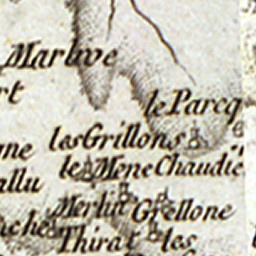 Maruve
rt
le Parcq
les Grillons
ne
le Mene Chaudie
allu
Merlin Grellone
Thirat les